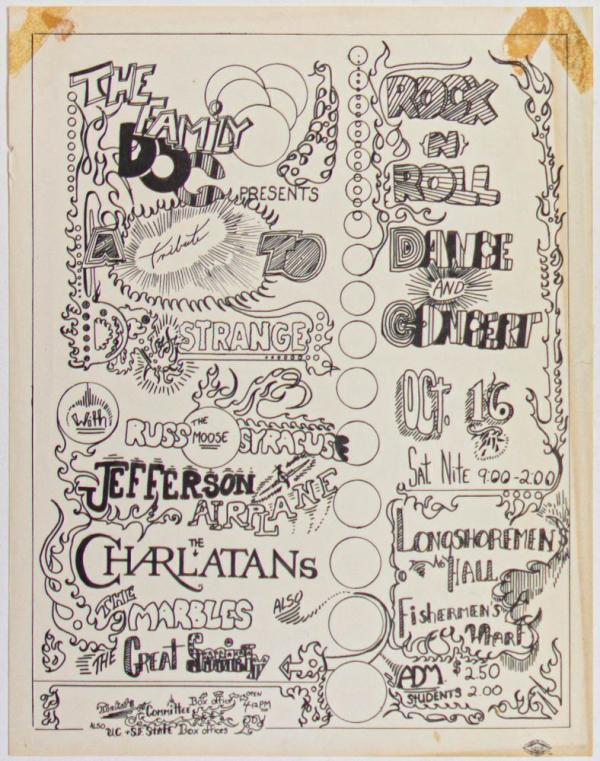 THE
FAMILY
DOG
PRESENTS
A tribute TO
DR. STRANGE
With
RUSS THE MOOSE SYRACUSE
JEFFERSON
AIRPLANE
THE
CHARLATANS
THE
MARBLES
ALSO
THE GREAT Society
ROCK
N
ROLL
DANCE
AND
CONCERT
OCT. 16
SAT NITE 9:00-2:00
LONGSHOREMEN'S
HALL
FISHERMEN'S
WHARF
ADM. $2.50
STUDENTS 2.00
Committee Box office OPEN
4-12PM
ALSO U.C + S.F. STATE Box offices